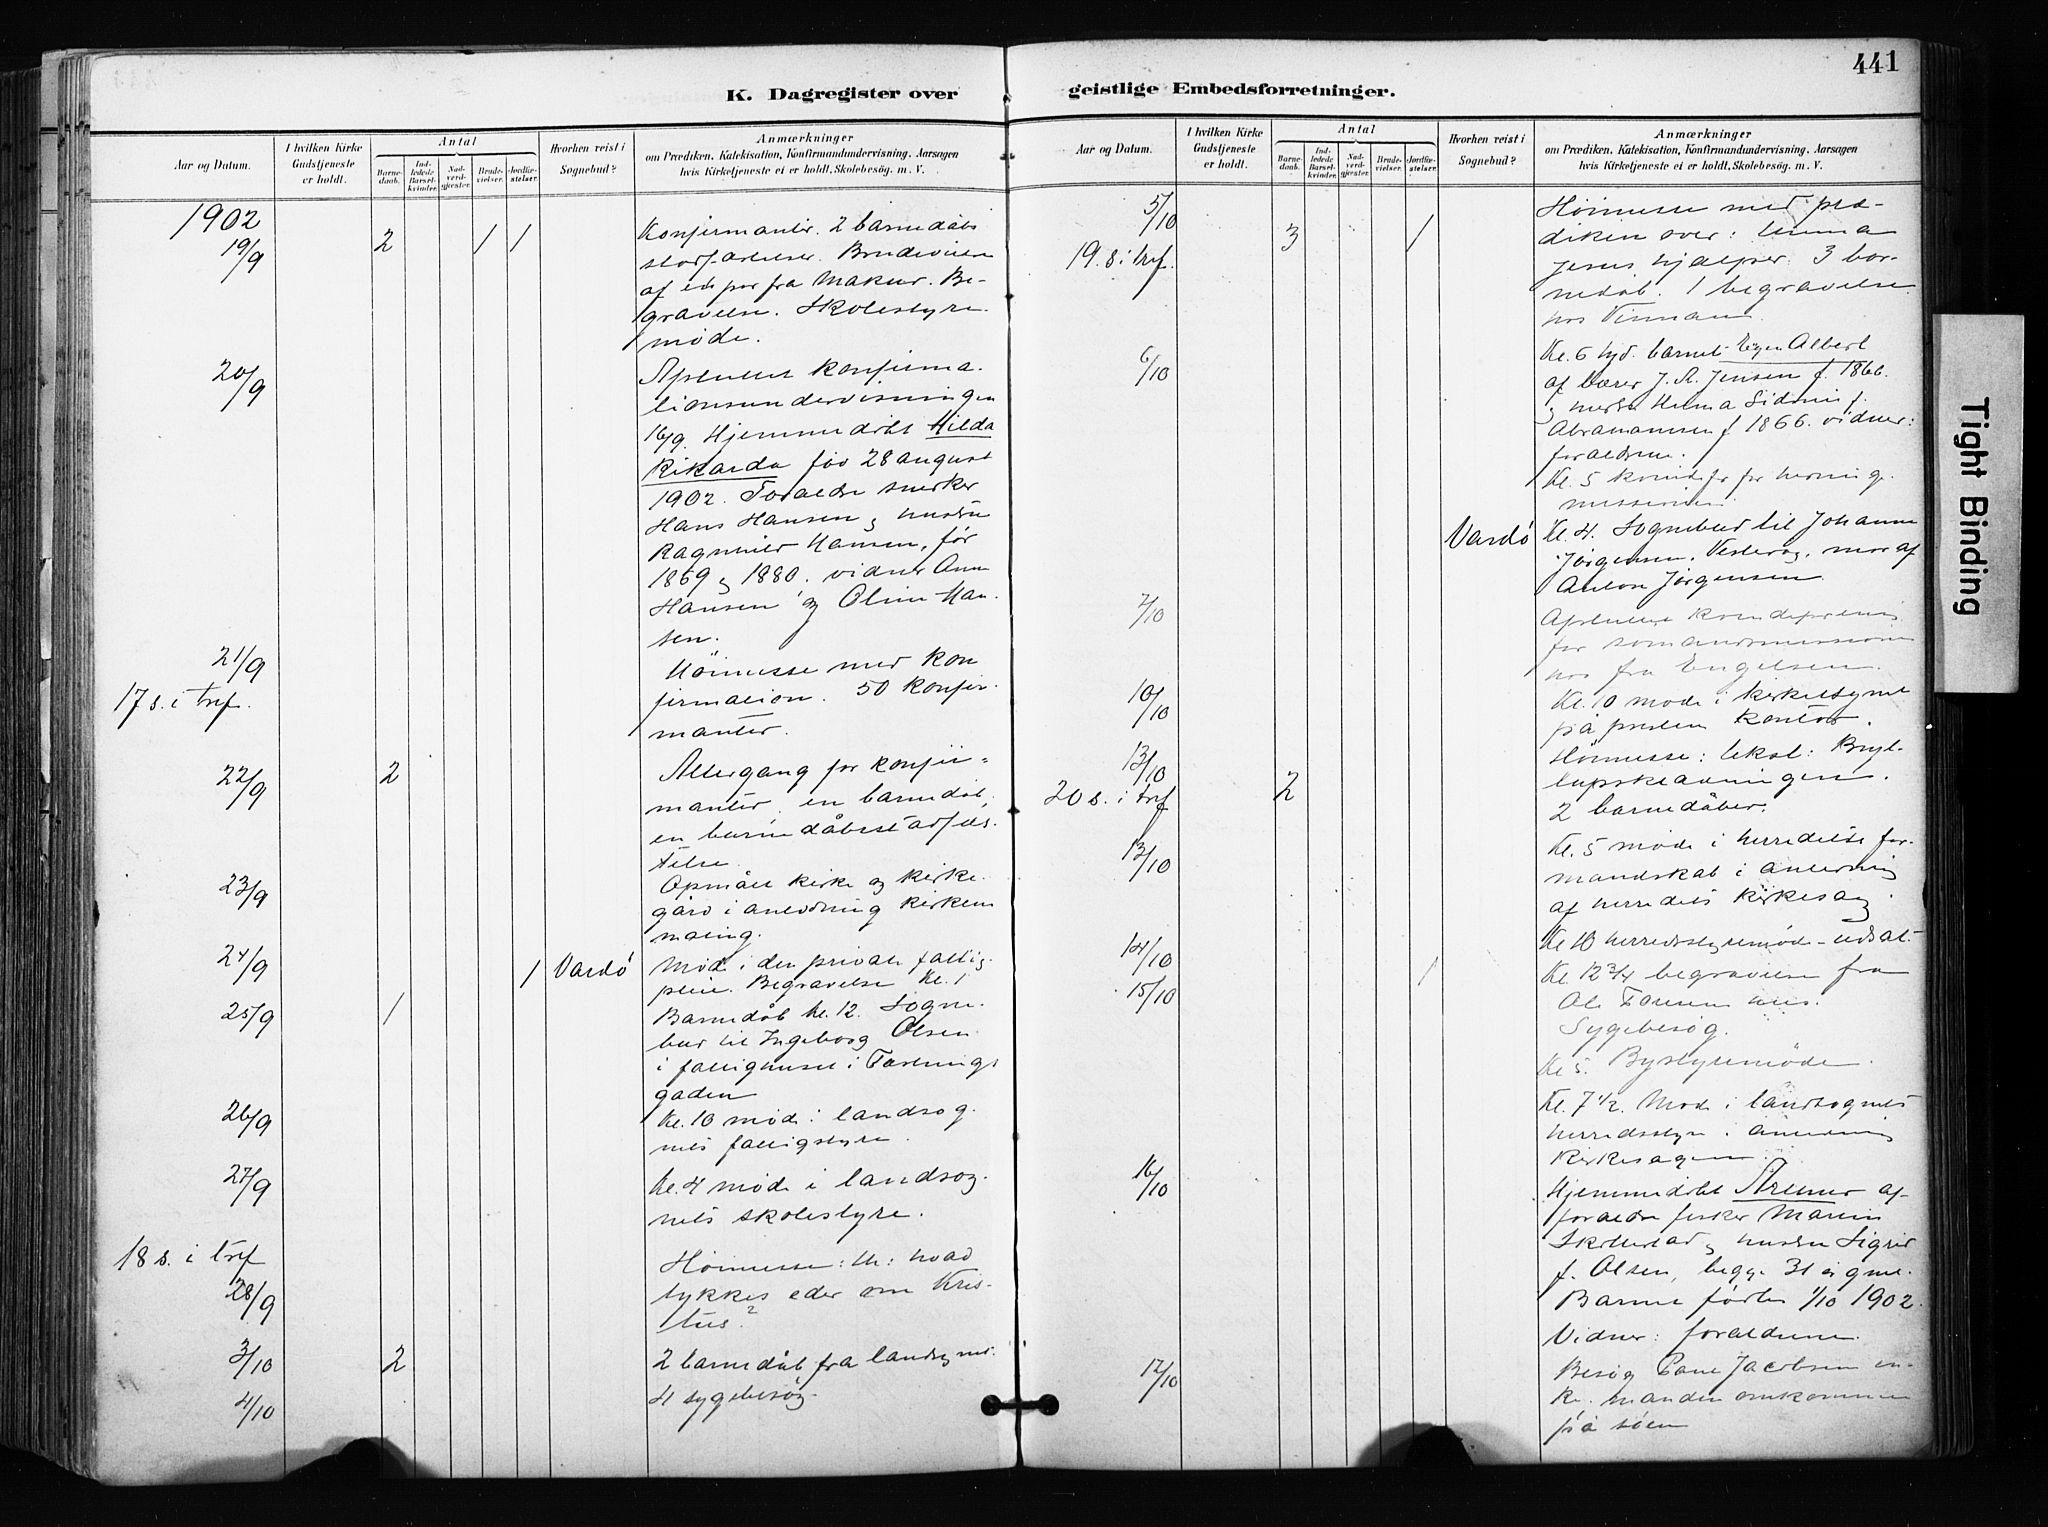 441
K. Dagregister over
geistlige Embedsforretninger.
Aar og Datum.
I hvilken Kirke
Gudstjeneste
er holdt.
Antal
Barne-
daab.
Ind-
ledede
Barsel-
kvinder.
Nad-
verd-
gjester.
Brude-
vielser.
Jordfæ-
stelser.
Hvorhen reist i
Sognebud?
Anmærkninger
om Prædiken, Katekisation, Konfirmandundervisning, Aarsagen
hvis Kirketjeneste ei er holdt, Skolebesøg. m. V.
1902
19/9 2 1 1
Konfirmanter. 2 barnedåbs
af et par fra Makur. Be-
gravelse. Skolestyre
møde.
20/9
Afsluttet konfirma.
tionsundervisningen
16/9. Hjemmedøbt Hilda
Rikarda fød 28 august
1902. Forældre snerker
Hans Hansen og hustru
Hansen, før
1869 og 1880. vidner Anna
Hansen og Oline Han-
sen.
21/9
17 s. i tref.
Høimesse med kon
firmation. 50 konfir-
manter.
22/9 2
Altergang for konfir-
manter, en barnedåb,
en barnedåbsstadfæs-
telse.
23/9
Opmålt kirke og kirke-
gård i anledning kirkens
maling.
24/9 1 Vardø
Møde i den private fattig-
pleie. Begravelse kl. 1
25/9 1
Barnedåb kl. 12. Sogne-
bud til Ingeborg Olsen
i fattighuset i
gaden
26/9
Kl. 10 møde i landsog-
nets fattigstyre.
27/9
Kl. 4 møde i landsog-
nets skolestyre.
18 s. i tref
28/9
Høimesse: th: hvad
tykkes eder om Kris-
tus?
3/10 2
2 barnedåb fra landsognet.
4/10
4 sygebesøg.
Aar og Datum.
I hvilken Kirke
Gudstjeneste
er holdt.
Antal
Barne-
daab.
Ind-
ledede
Barsel-
kvinder.
Nad-
verd-
gjester.
Brude-
vielser.
Jordfæ-
stelser.
Hvorhen reist i
Sognebud?
Anmærkninger
om Prædiken, Katekisation, Konfirmandundervisning, Aarsagen
hvis Kirketjeneste ei er holdt, Skolebesøg. m. V.
5/10 3 1
19. s. i tref.
Høimesse med præ-
diken over:
Jesus hjælper. 3 bar-
nedåb. 1 begravelse
hos
6/10
Kl. 6 barnet Albert
af J. A. Jensen f. 1866
og hustru
Abrahamsen f 1866. vidner:
forældrene.
Kl. 5
missionen
Vardø
Kl. 4. Sognebud til Johanna
Jørgensen, mor af
Anton Jørgensen
7/10
Afsluttet kvindeforening
for sømandsmissionen
hos fra Engelsen.
10/10
Kl. 10 møde i kirketilsynet
på prestens kontor.
13/10 2
20 s. i tref
Høimesse: tekst: Bryl-
lupsklædningen.
2 barnedåber.
13/10
Kl. 5 møde i herredets for-
mandskab i anledning
af herredets kirkesag.
14/10
Kl. 10 herredsstyremøde - udsat.
15/10 1
Kl. 12 3/4 begravelse fra
Ole hus.
Sygebesøg.
Kl 5. Bystyremøde.
Kl. 7 1/2. Møde i landsognets
herredsstyre i anledning
kirkesagen.
16/10
Hjemmedøbt af
forældre fisker Martin
og hustru Sigrid
f. Olsen, begge 31 år gml.
Barnet født 1/10 1902.
Vidner: forældrene.
17/10
Besøg Jacobsen en-
ke. manden omkommen
på søen
Tight Binding